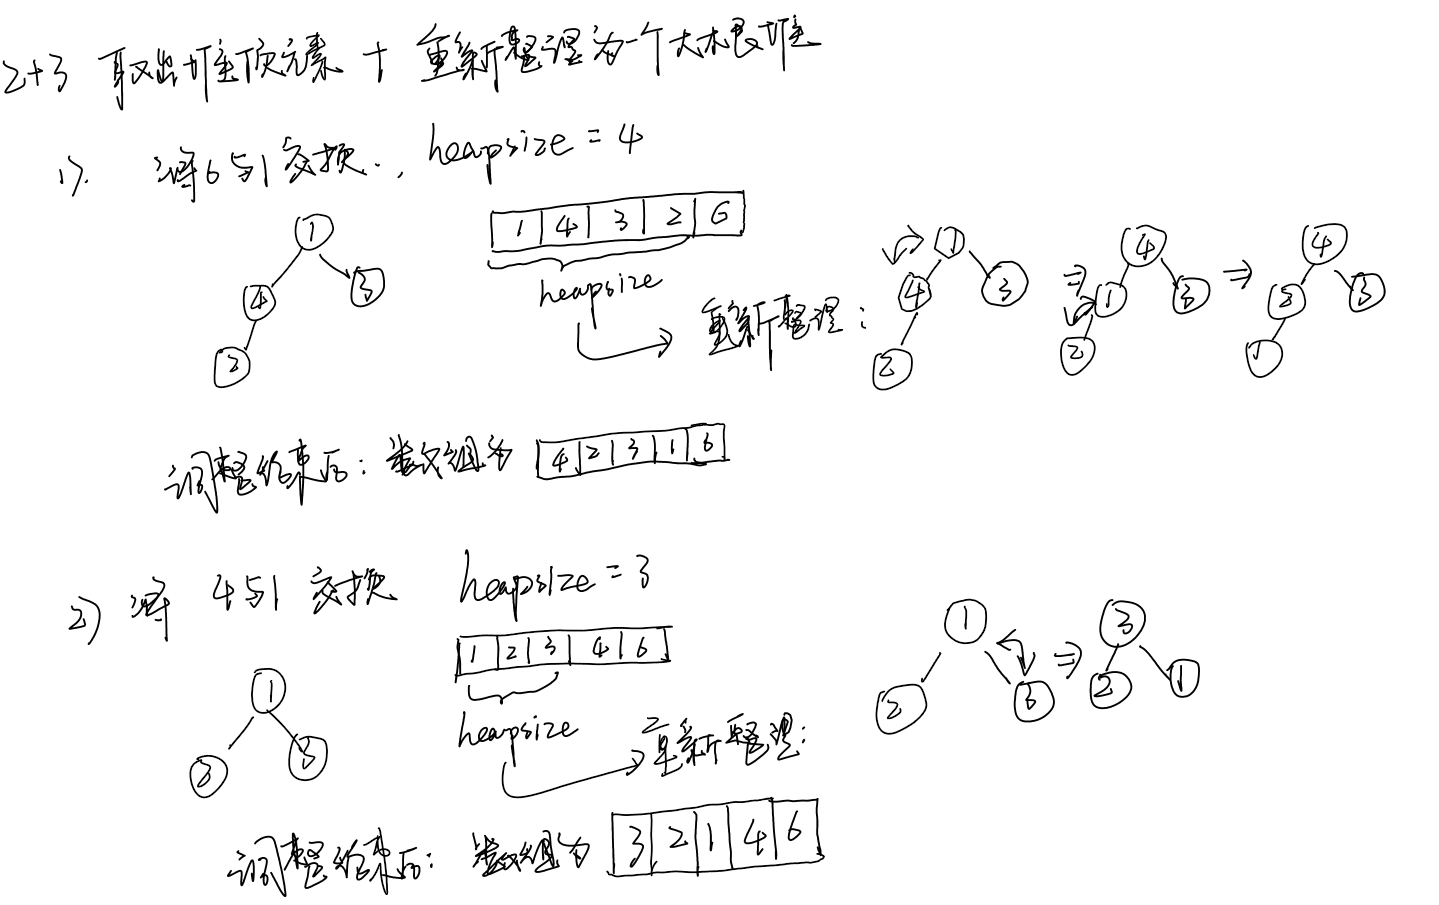 2+3 取出堆顶元素 + 重新整理为一个大根堆
1). 将6与1交换., heapsize = 4
1 4 3 2 6
heapsize
重新整理:
1
4 3
2
1
4 3
2
⇒
4
1 3
2
⇒
4
2 3
1
调整结束后: 数组为 4 2 3 1 6
2) 将 4与1 交换 heapsize = 3
1 2 3 4 6
heapsize
重新整理:
1
2 3
1
2 3
⇒
3
2 1
调整结束后: 数组为 3 2 1 4 6